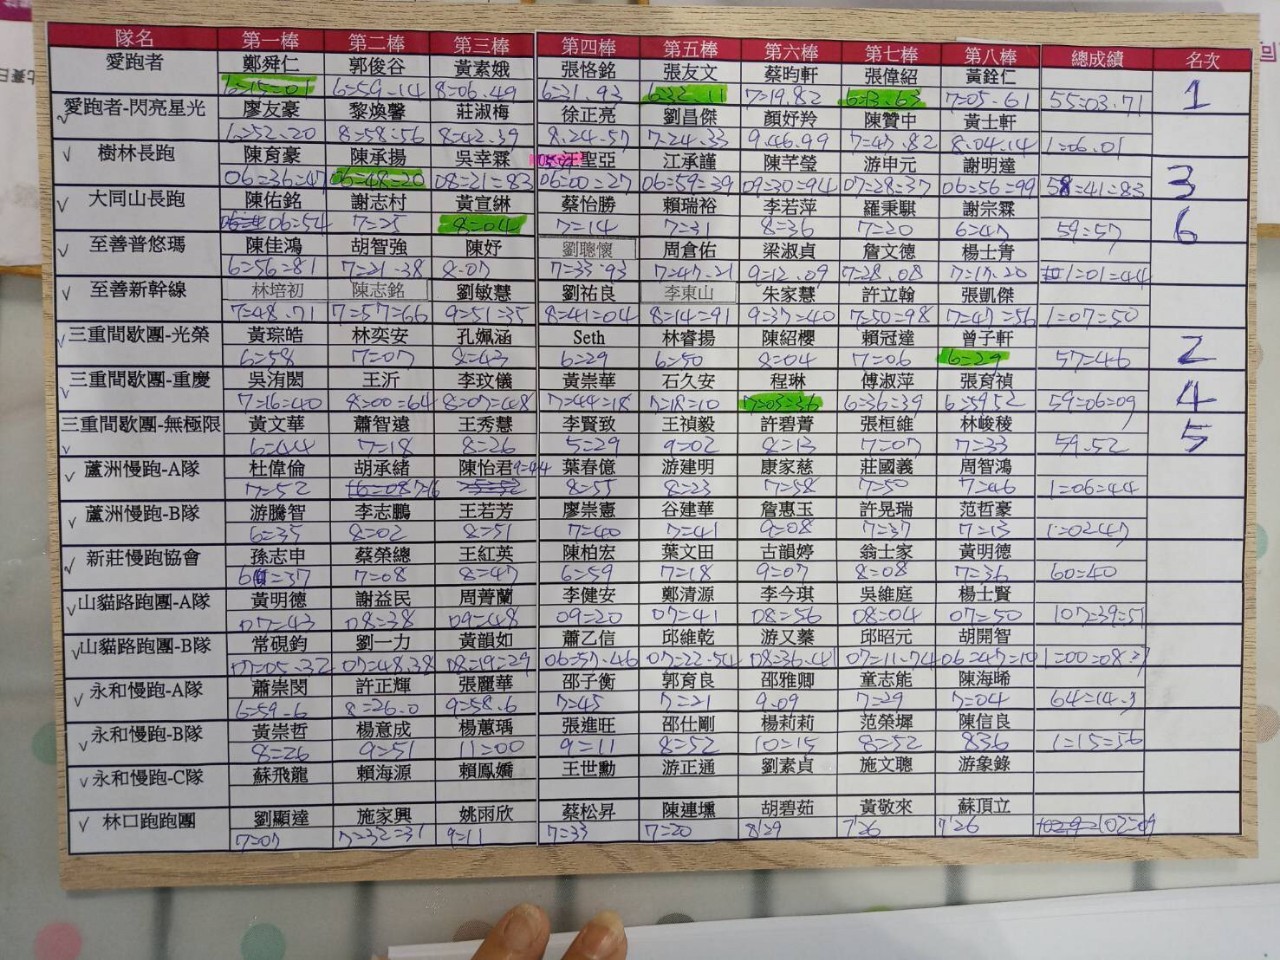 隊名 第一棒 第二棒 第三棒 第四棒 第五棒 第六棒 第七棒 第八棒 總成績 名次
愛跑者 鄭舜仁 郭俊谷 黃素娥 張恪銘 張友文 蔡昀軒 張偉紹 黃銓仁
6=15=01 6=59-14 8=06.49 6=21.93 6=32.11 7=19.82 6=13.63 7=05.61 55=03.71 1
愛跑者-閃亮星光 廖友豪 黎煥馨 莊淑梅 徐正亮 劉昌傑 顏妤羚 陳贊中 黃士軒
6=52.20 8=58=56 8=42.39 8.24-57 7.24.33 9.46.99 7=47.82 8.04.14 1=06.01
樹林長跑 陳育豪 陳承揚 吳幸霖 聖亞 江承謹 陳芊瑩 游申元 謝明達
06=36=47 06=48=20 08=21=83 06=00=27 06=59=39 09=30=94 07=28=37 06=56=99 58=41=83 3
大同山長跑 陳佑銘 謝志村 黃宣綝 蔡怡勝 賴瑞裕 李若萍 羅秉騏 謝宗霖
06=54 7=25 8=04 7=14 7=31 8=36 7=20 6=47 59=57 6
至善普悠瑪 陳佳鴻 胡智強 陳妤 劉聰懷 周倉佑 梁淑貞 詹文德 楊士青
6=56=81 7=21-38 8-07 7=33-93 7=47.21 9=12.09 7=28.08 7=17.20 1=01=44
至善新幹線 林培初 陳志銘 劉敏慧 劉祐良 李東山 朱家慧 許立翰 張凱傑
7=48.71 7=57=66 9=51=35 8=41=04 8=14=91 9=37=40 7=50=98 7=47=56 1=07=50
三重間歇團-光榮 黃琮皓 林奕安 孔姵涵 Seth 林睿揚 陳紹櫻 賴冠達 曾子軒
6=58 7=07 8=43 6=29 6=50 8=04 7=06 6=29 57=46 2
三重間歇團-重慶 吳洧閎 王沂 李玟儀 黃崇華 石久安 程琳 傅淑萍 張育禎
7=16=40 8=00=64 8=07=48 7=44=18 7=18=10 7=03=36 6=36=39 6=5952 59=06=09 4
三重間歇團-無極限 黃文華 蕭智遠 王秀慧 李賢致 王禎毅 許碧菁 張桓維 林峻稜
6=44 7=18 8=26 5=29 9=02 8=13 7=07 7=33 59.52 5
蘆洲慢跑-A隊 杜偉倫 胡承緒 陳怡君 9=44 葉春億 游建明 康家慈 莊國義 周智鴻
7=52 8=55 8=23 7=58 7=50 7=46 1=06=44
蘆洲慢跑-B隊 游騰智 李志鵬 王若芳 廖崇憲 谷建華 詹惠玉 許晃瑞 范哲豪
6=35 8=02 8=51 7=40 7=41 9=08 7=37 7=13 1=0247
新莊慢跑協會 孫志申 蔡榮總 王紅英 陳柏宏 葉文田 古韻婷 翁士家 黃明德
6=37 7=08 8=47 6=59 7=18 9=07 8=08 7=36 60=40
山貓路跑團-A隊 黃明德 謝益民 周菁蘭 李健安 鄭清源 李今琪 吳維庭 楊士賢
07=43 08=38 09=48 09=20 07=41 08=56 08=04 07=50 107=39=51
山貓路跑團-B隊 常硯鈞 劉一力 黃韻如 蕭乙信 邱維乾 游又蓁 邱昭元 胡開智
07=05.32 07=48.38 08=19=29 06=57.46 07=22.54 08=36.41 07=11.74 06=47=19 1=00=08
永和慢跑-A隊 蕭崇閔 許正輝 張麗華 邵子衡 郭育良 邵雅卿 童志能 陳海晞
6=59.6 8=26.0 9=58.6 7=45 7=21 9.09 7=29 7=04 64=14.3
永和慢跑-B隊 黃崇哲 楊意成 楊蕙瑀 張進旺 邵仕剛 楊莉莉 范榮墀 陳信良
8=26 9=51 11=00 9=11 8=52 10=15 8=52 836 1=15=56
永和慢跑-C隊 蘇飛龍 賴海源 賴鳳嬌 王世勳 游正通 劉素貞 施文聰 游象錄
林口跑跑團 劉顯達 施家興 姚雨欣 蔡松昇 陳連壎 胡碧茹 黃敬來 蘇頂立
7=07 7=32=31 9=11 7=33 7=20 8'29 7'26 7'26 102=09